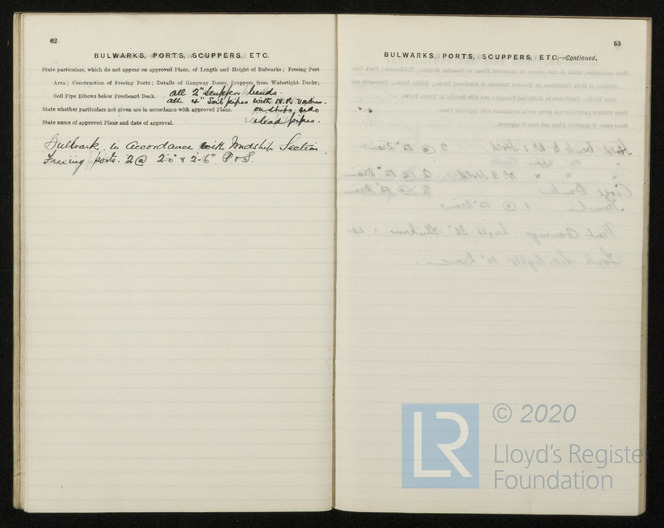 62
BULWARKS, PORTS, SCUPPERS, ETC.
State particulars, which do not appear on approved Plans, of Length and Height of Bulwarks; Freeing Port
Area; Construction of Freeing Ports; Details of Gangway Doors, Scuppers from Watertight Decks;
Soil Pipe Elbows below Freeboard Deck. all 2" scupper bends.
all 4" Soil pipes with N.R. valves
State whether particulars not given are in accordance with approved Plans. on ships side
State name of approved Plans and date of approval. lead pipes.
Bulwark in accordance with Midship Section
Freeing ports. 2 @ 2'0" x 2'-6" P & S.
63
BULWARKS, PORTS, SCUPPERS, ETC.—Continued.
© 2020
LR
Lloyd's Register
Foundation